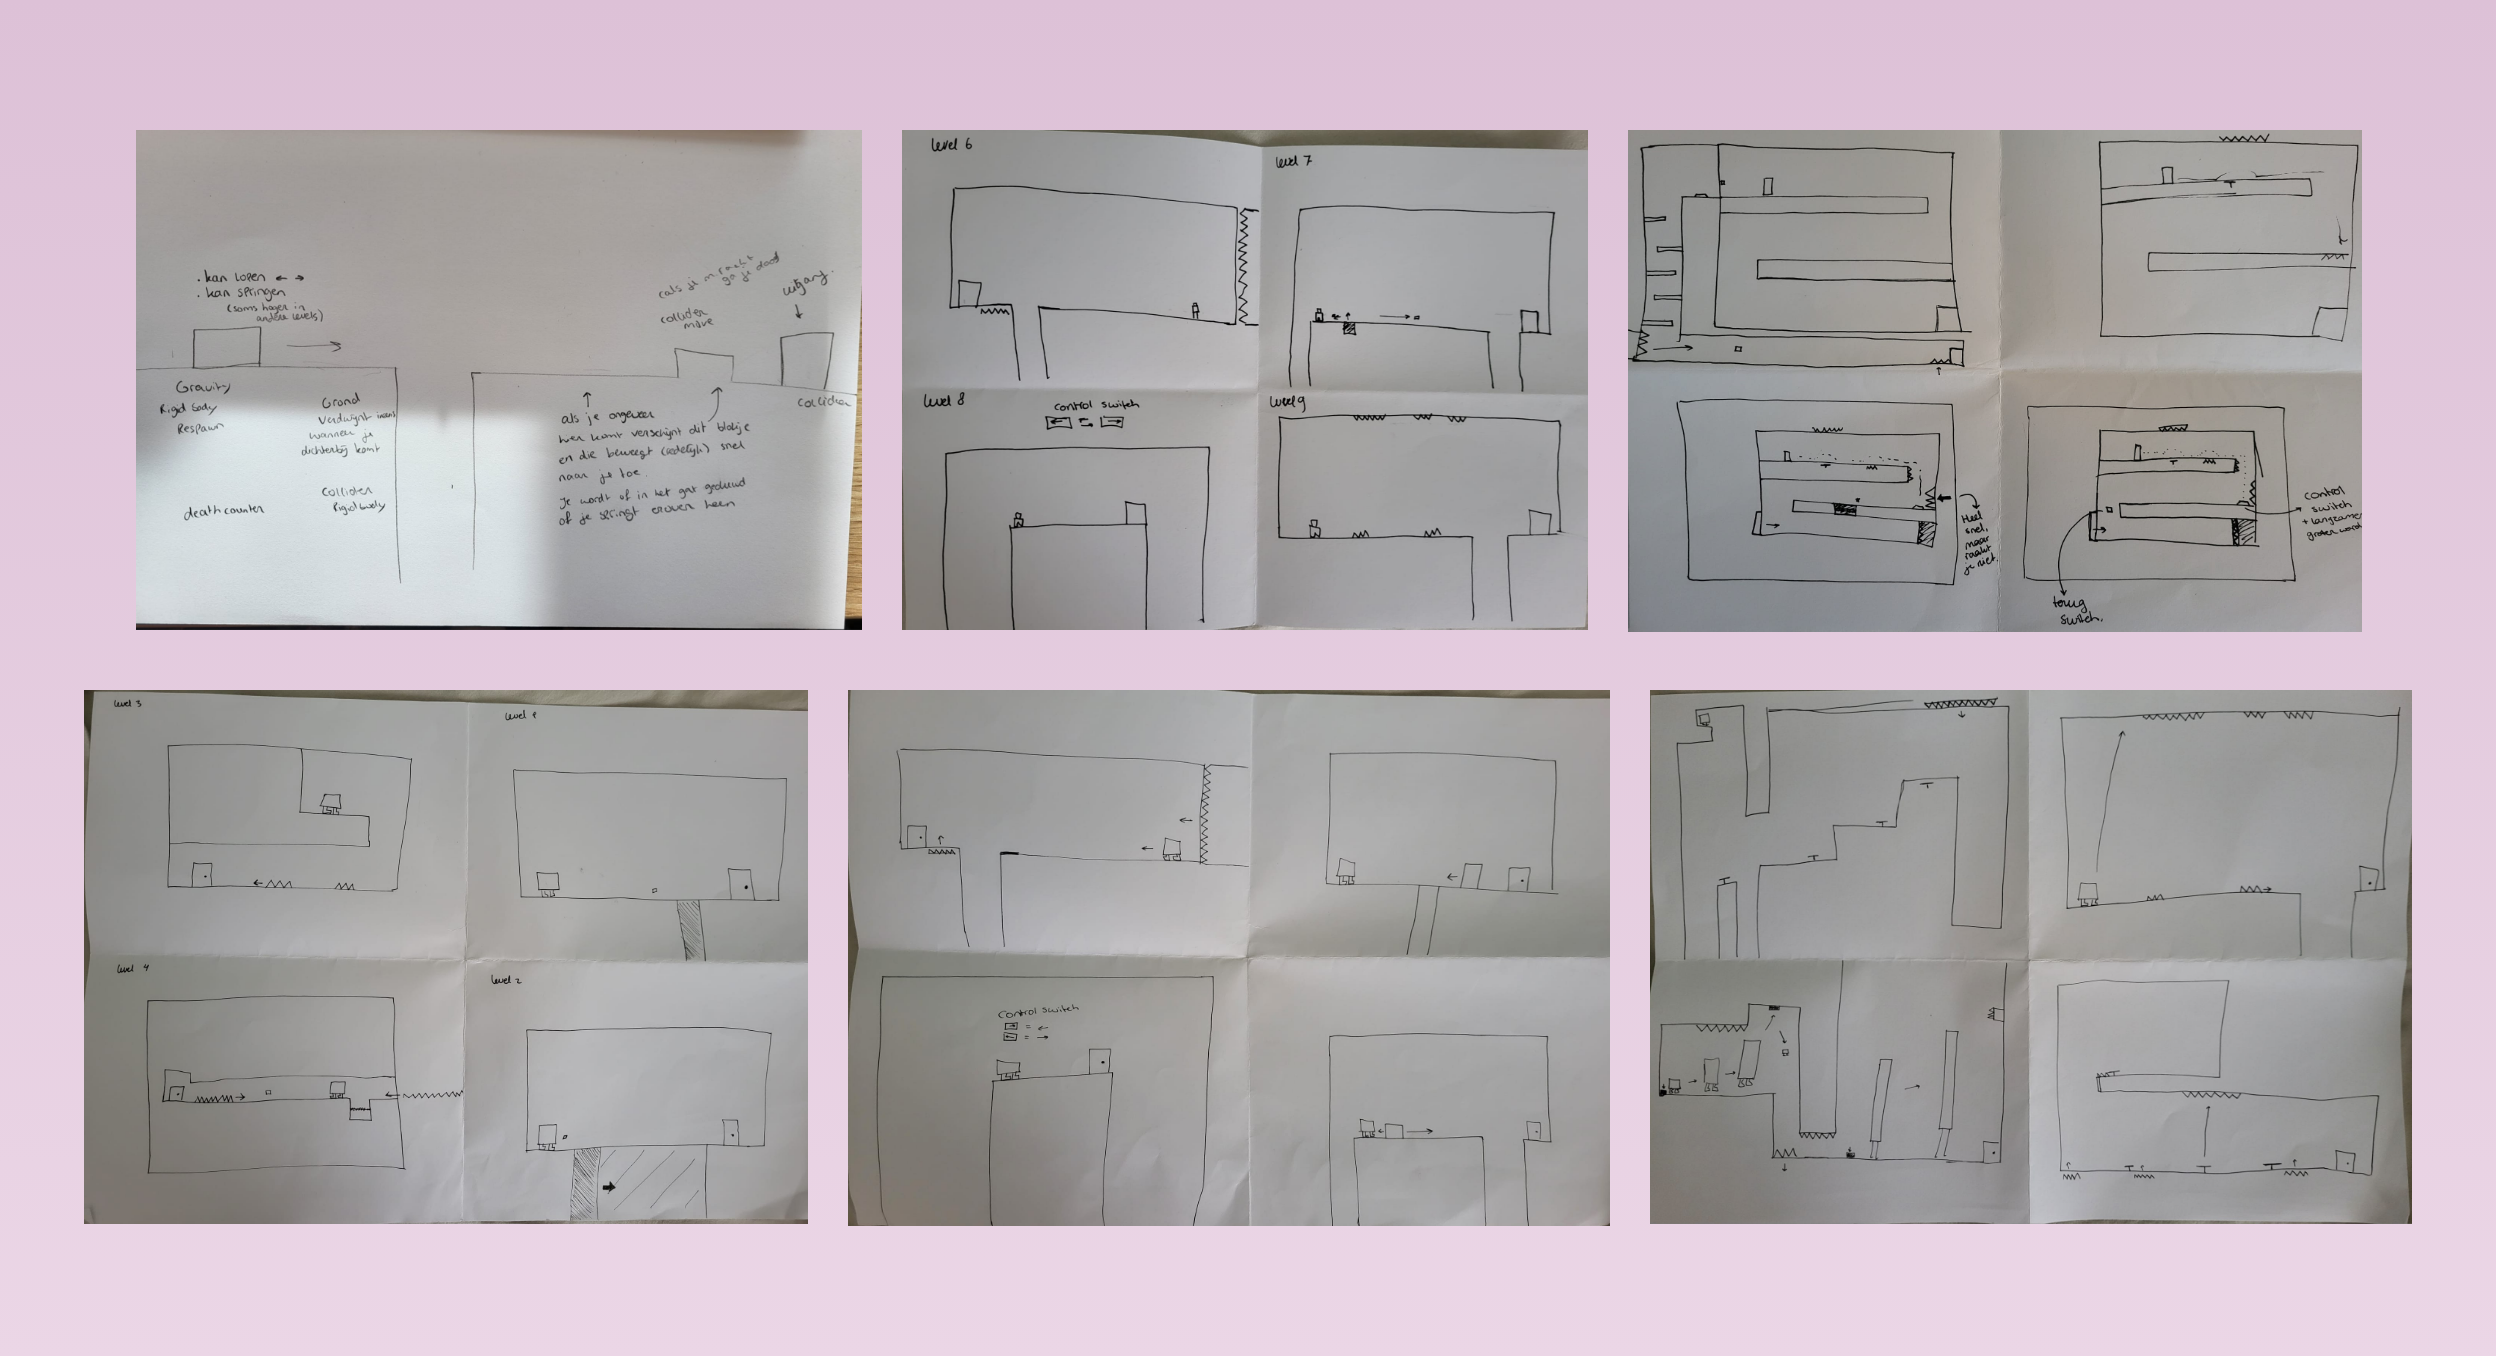 . kan lopen ← →
. kan springen
(soms hoger in
andere levels)
Gravity
Rigid body
Respawn
Grond
Verdwijnt ineens
wanneer je
dichterbij komt
Collider
Rigidbody
death counter
(als je m raakt
ga je dood
collider
move
uitgang.
Collider
als je ongeveer
hier komt verschijnt dit blokje
en die beweegt (redelijk) snel
naar je toe.
Je wordt of in het gat geduwd
of je springt erover heen
Level 6
Level 7
Level 8
control switch
Level 9
Heel
snel,
maar
raakt
je niet.
control
switch
+ langzamer
groter word
terug
switch.
Level 3
Level 1
Level 4
Level 2
Control switch
→ = ←
← = →